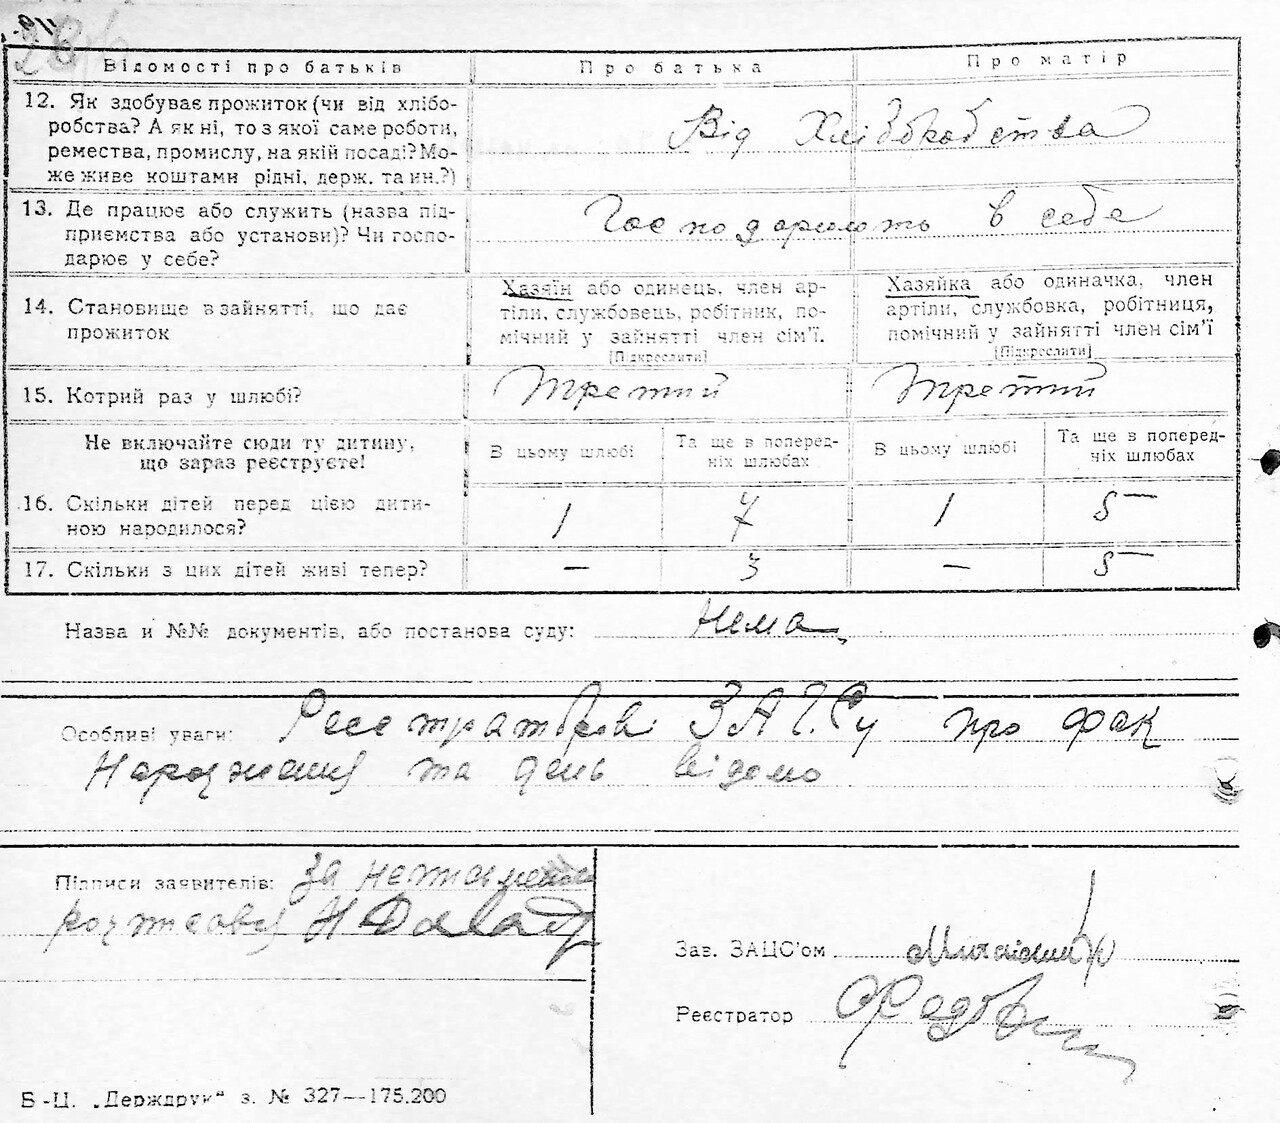 28
Відомості про батьків
Про батька
Про матір
12. Як здобуває прожиток (чи від хлібо-
робства? А як ні, то з якої саме роботи,
ремества, промислу, на якій посаді? Мо-
же живе коштами рідні, держ. та ин.?)
Від Хлібобробства
13. Де працює або служить (назва під-
приємства або установи)? Чи госпо-
дарює у себе?
Господарюють в себе
14. Становище в зайнятті, що дає
прожиток
Хазяїн або одинець, член ар-
тіли, службовець, робітник, по-
мічний у зайнятті член сім'ї.
[Підкреслити]
Хазяйка або одиначка, член
артіли, службовка, робітниця,
помічний у зайнятті член сім'ї
[Підкреслити]
15. Котрий раз у шлюбі?
Третий
Третий
Не включайте сюди ту дитину,
що зараз реєструєте!
В цьому шлюбі
Та ще в поперед-
ніх шлюбах
В цьому шлюбі
Та ще в поперед-
ніх шлюбах
16. Скільки дітей перед цією дити-
ною народилося?
1
7
1
5
17. Скільки з цих дітей живі тепер?
—
3
—
5
Назва и №№ документів, або постанова суду: Нема
Особливі уваги: Реєстраторові ЗАГСу про фак
Народження та день відомо
Підписи заявителів: За неписьмен
розписався Н
Зав. ЗАЦС'ом
Реєстратор
Б-Ц. „Держдрук“ з. № 327—175.200